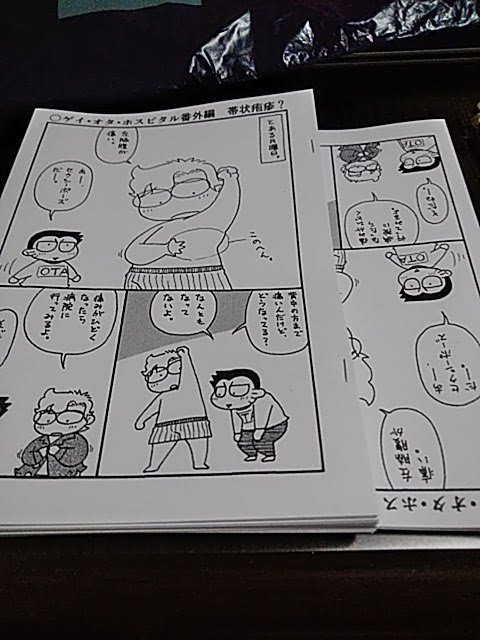 ○ゲイ・オタ・ホスピタル番外編 帯状疱疹?
とある月曜日。
左脇腹が
痛い。
あー、
セクシーポーズ
だー。
このへん。
OTA
背中の方まで
痛いんだけど、
どうなってる?
なんとも
なって
ないよ。
痛みがひどく
なったら
病院に
行ってみるよ。
OTA
OTA
あー、
セクシーポーズ
だー。
左脇腹が
痛い。
・オタ・ホス